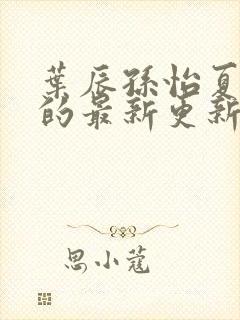 葉辰孫怡夏
的最新更新
思小蔻